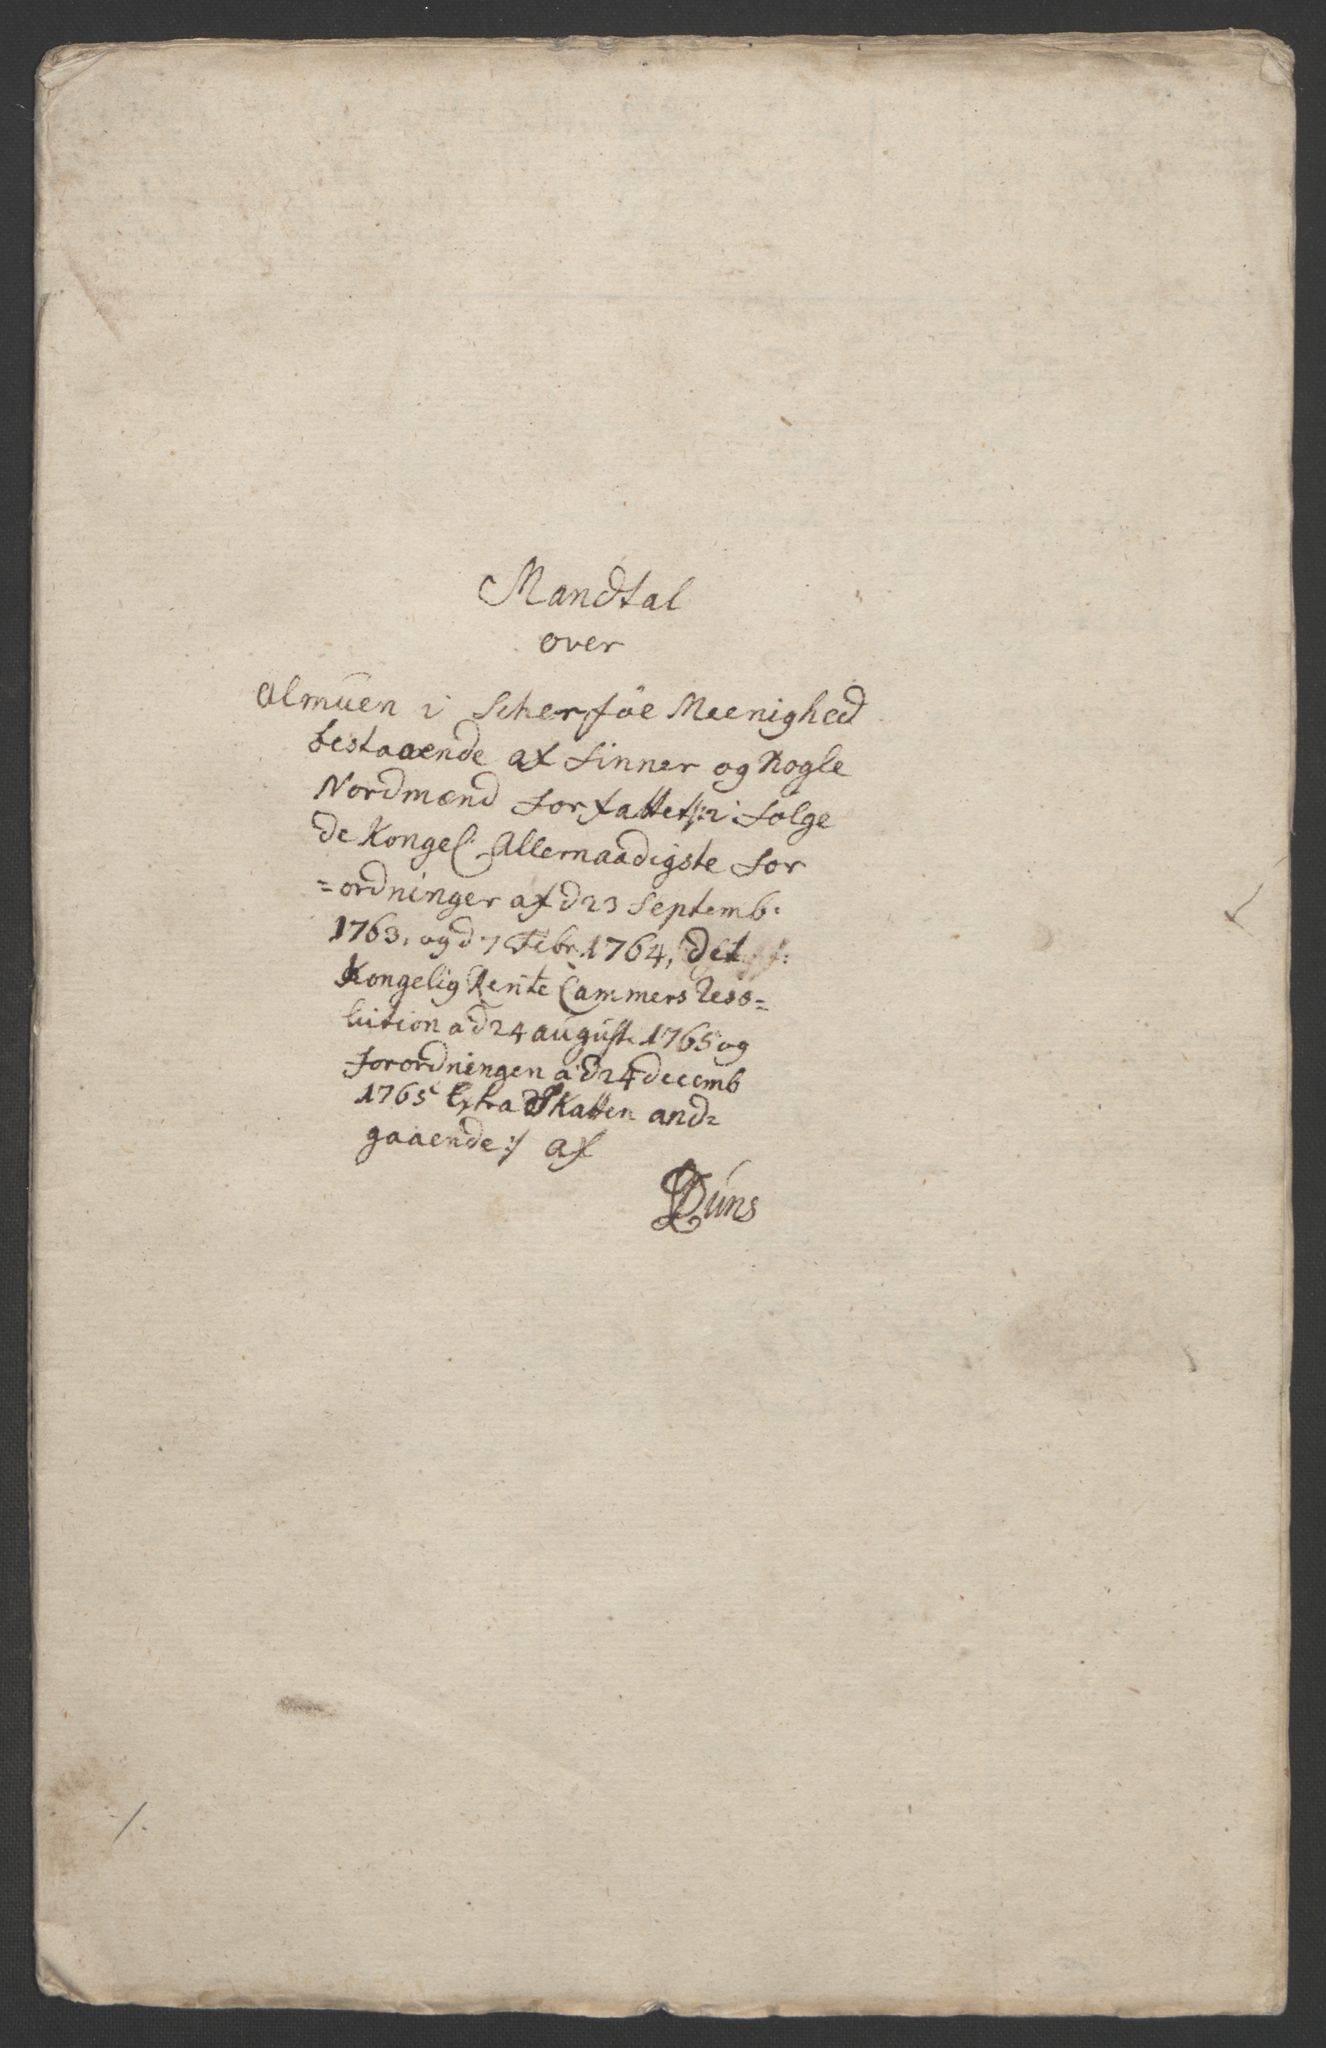 Mandtal
over
Almuen i Scherføe Meenighed
bestaaende af Finner og Nogle
Nordmænd forfattet /: i følge
de Kongel. Allernaadigste For
=ordninger af d 23 Septemb:
1763, og d 7 Febr. 1764, det
Kongelig Rente Cammers Reso=
lution a d 24 august. 1765 og
forordningen a d 24 decemb
1765 Extra Skatten and=
gaaende :/ af
Duns